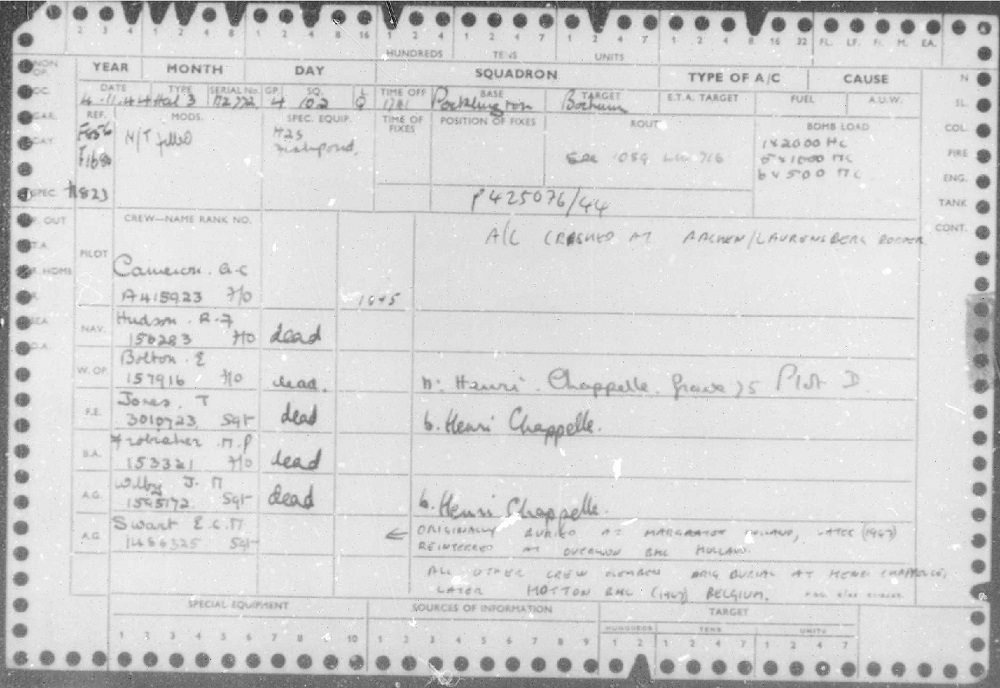 2 3 4 1 2 4 7 1 2 4 8 16 1 2 3 4 1 2 4 7 1 2 4 7 1 2 4 8 16 32 FL. LF. FI. M. EA.
HUNDREDS TENS UNITS
YEAR MONTH DAY SQUADRON TYPE OF A/C CAUSE N
DATE TYPE SERIAL No. GP. SQ. L TIME OFF BASE TARGET E.T.A. TARGET FUEL A.U.W. SL.
4.11.44 Hal 3 4 102 Q Pocklington Bochum
REF. MODS. SPEC. EQUIP. TIME OF FIXES POSITION OF FIXES ROUT BOMB LOAD COL.
M/T filled H2S
Fishpond,
1x2000 HC FIRE
6x500 MC ENG.
SPEC. H823 TANK
P425076/44
OUT CREW—NAME RANK NO. CONT.
A/C CRASHED AT AACHEN/LAURENSBERG BORDER
PILOT
HOME Cameron. G.C
A415923 F/O 1645
NAV. Hudson. R.F
156283 F/O dead
W.OP. Bolton. E
157916 F/O dead. Henri. Chappelle. Grave 75 Plot D
F.E. Jones. T
3010723 Sgt dead b. Henri Chappelle.
B.A. M.P
153321 F/O dead
A.G. Wilby J. M
1595172 Sgt dead b. Henri Chappelle.
A.G. Swart E.C.M
1484325 Sgt ← ORIGINALLY BURIED AT MARGRATEN HOLLAND, LATER (1947)
REINTERRED AT OVERLOON BMC HOLLAND.
ALL OTHER CREW MEMBERS ORIG BURIAL AT HENRI CHAPPELLE,
LATER HOTTON BMC (1947) BELGIUM.
SPECIAL EQUIPMENT SOURCES OF INFORMATION TARGET
HUNDREDS TENS UNITS
1 2 3 4 5 6 7 8 9 10 1 2 3 4 5 6 7 8 9 1 2 1 2 4 7 1 2 4 7